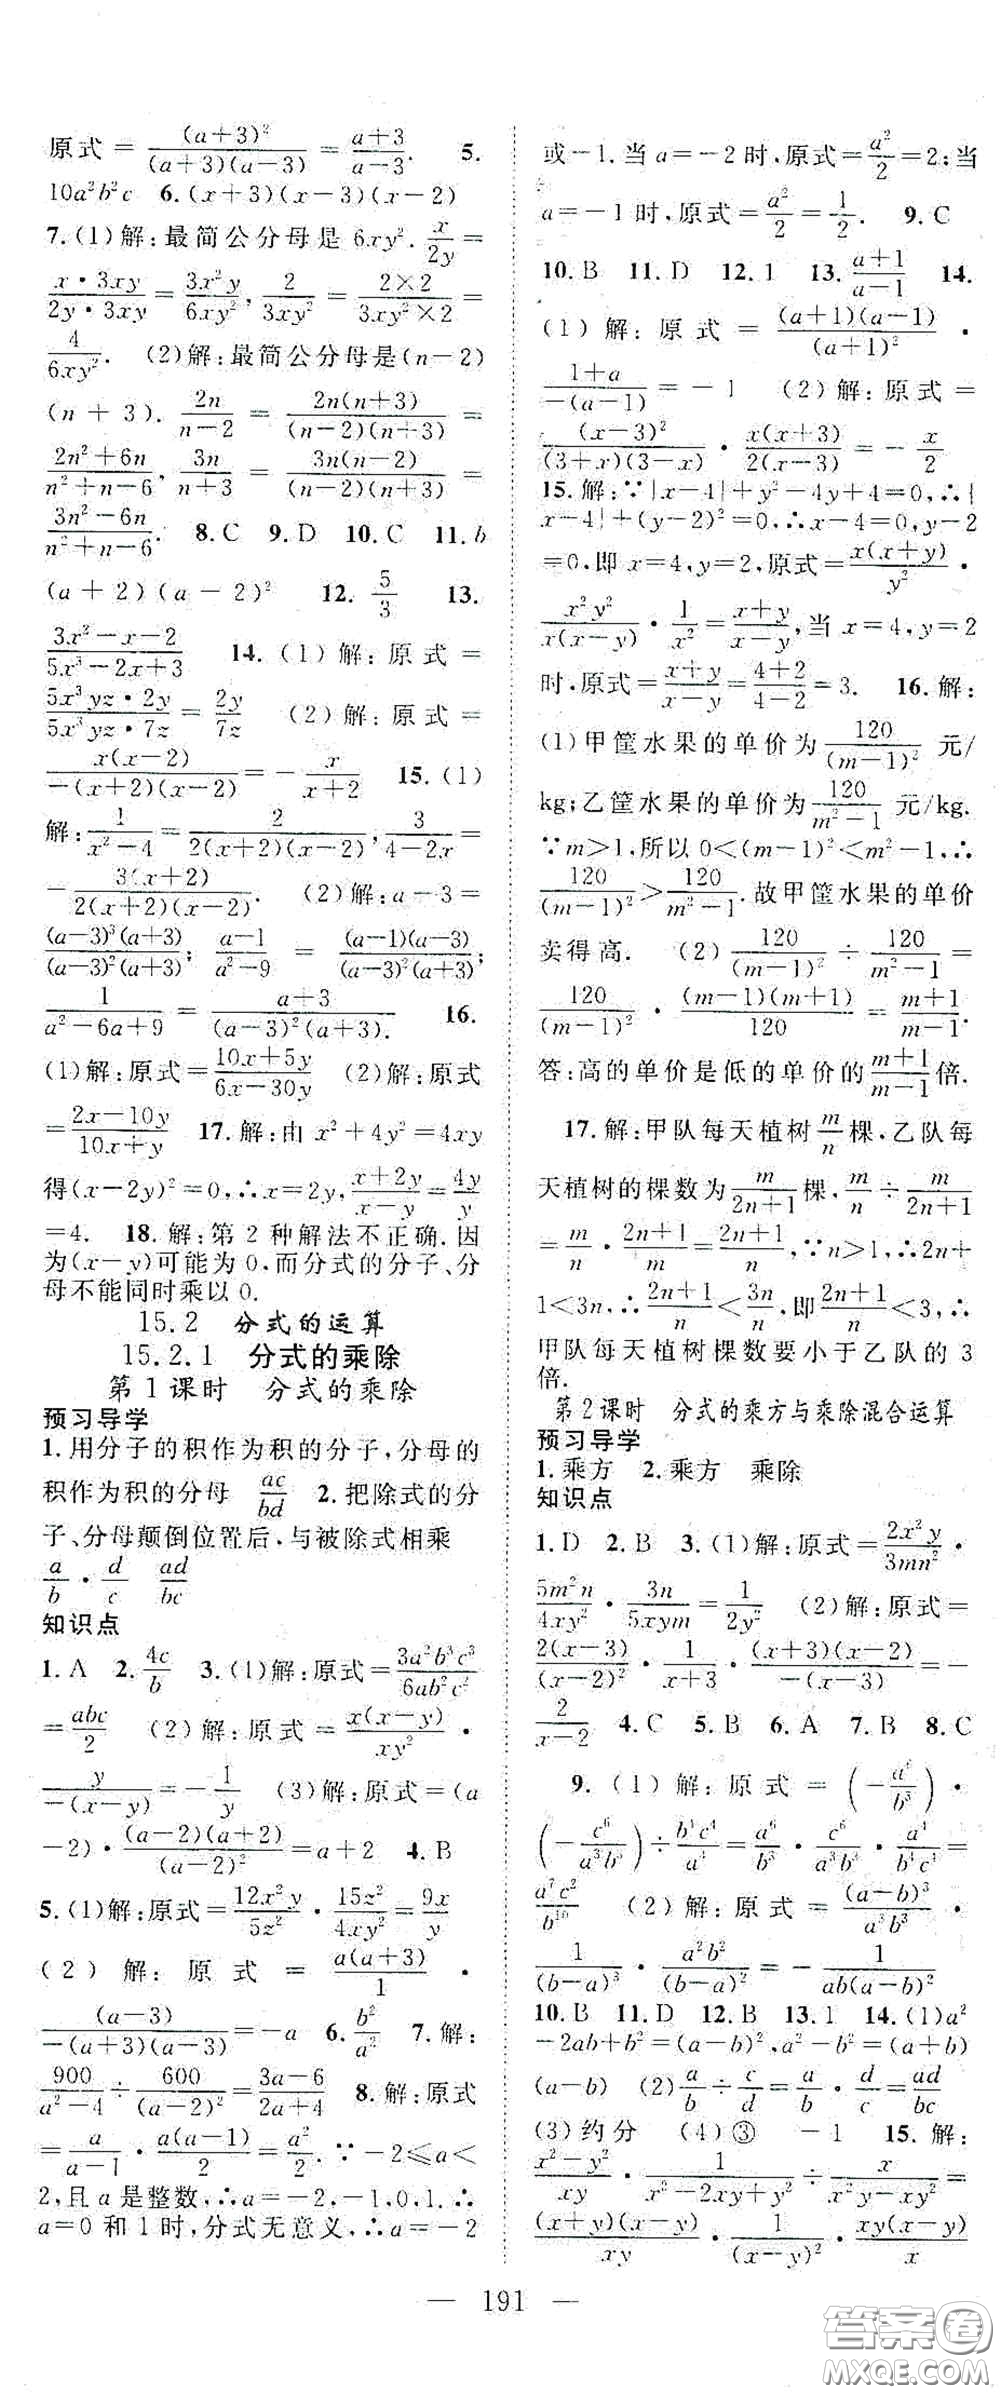 原式=\frac{(a+3)^2}{(a+3)(a-3)}=\frac{a+3}{a-3}. 5.
10a^2b^2c 6.(x+3)(x-3)(x-2)
7.(1)解:最简公分母是6xy^2.\frac{x}{2y}=
\frac{x·3xy}{2y·3xy}=\frac{3x^2y}{6xy^2},\frac{2}{3xy^2}=\frac{2×2}{3xy^2×2}=
\frac{4}{6xy^2}. (2)解:最简公分母是(n-2)
(n+3).\frac{2n}{n-2}=\frac{2n(n+3)}{(n-2)(n+3)}=
\frac{2n^2+6n}{n^2+n-6},\frac{3n}{n+3}=\frac{3n(n-2)}{(n-2)(n+3)}=
\frac{3n^2-6n}{n^2+n-6}. 8.C 9.D 10.C 11.b
(a+2)(a-2)^2 12.\frac{5}{3} 13.
\frac{3x^2-x-2}{5x^3-2x+3} 14.(1)解:原式=
\frac{5x^3yz·2y}{5x^3yz·7z}=\frac{2y}{7z} (2)解:原式=
\frac{x(x-2)}{-(x+2)(x-2)}=-\frac{x}{x+2} 15.(1)
解:\frac{1}{x^2-4}=\frac{2}{2(x+2)(x-2)},\frac{3}{4-2x}=
-\frac{3(x+2)}{2(x+2)(x-2)}. (2)解:a-3=
\frac{(a-3)^3(a+3)}{(a-3)^2(a+3)};\frac{a-1}{a^2-9}=\frac{(a-1)(a-3)}{(a-3)^2(a+3)};
\frac{1}{a^2-6a+9}=\frac{a+3}{(a-3)^2(a+3)}. 16.
(1)解:原式=\frac{10x+5y}{6x-30y} (2)解:原式
=\frac{2x-10y}{10x+y} 17.解:由x^2+4y^2=4xy
得(x-2y)^2=0,∴x=2y,\frac{x+2y}{x-y}=\frac{4y}{y}
=4. 18.解:第2种解法不正确.因
为(x-y)可能为0,而分式的分子、分
母不能同时乘以0.
15.2 分式的运算
15.2.1 分式的乘除
第1课时 分式的乘除
预习导学
1.用分子的积作为积的分子,分母的
积作为积的分母 \frac{ac}{bd} 2.把除式的分
子、分母颠倒位置后,与被除式相乘
\frac{a}{b}·\frac{d}{c} \frac{ad}{bc}
知识点
1.A 2.\frac{4c}{b} 3.(1)解:原式=\frac{3a^2b^3c^3}{6ab^2c^2}
=\frac{abc}{2} (2)解:原式=\frac{x(x-y)}{xy^2}·
\frac{y}{-(x-y)}=-\frac{1}{y} (3)解:原式=(a
-2)·\frac{(a-2)(a+2)}{(a-2)^2}=a+2 4.B
5.(1)解:原式=\frac{12x^2y}{5z^2}·\frac{15z^2}{4xy^2}=\frac{9x}{y}
(2)解:原式=\frac{a(a+3)}{1}·
\frac{(a-3)}{-(a+3)(a-3)}=-a 6.\frac{b^2}{a^2} 7.解:
\frac{900}{a^2-4}÷\frac{600}{(a-2)^2}=\frac{3a-6}{2a+4} 8.解:原式
=\frac{a}{a-1}·\frac{a(a-1)}{2}=\frac{a^2}{2}.∵-2≤a<
2,且a是整数,∴a=-2,-1,0,1.∴
a=0和1时,分式无意义,∴a=-2
或-1.当a=-2时,原式=\frac{a^2}{2}=2;当
a=-1时,原式=\frac{a^2}{2}=\frac{1}{2}. 9.C
10.B 11.D 12.1 13.\frac{a+1}{a-1} 14.
(1)解:原式=\frac{(a+1)(a-1)}{(a+1)^2}·
\frac{1+a}{-(a-1)}=-1 (2)解:原式=
\frac{(x-3)^2}{(3+x)(3-x)}·\frac{x(x+3)}{2(x-3)}=-\frac{x}{2}
15.解:∵|x-4|+y^2-4y+4=0,∴|
x-4|+(y-2)^2=0,∴x-4=0,y-2
=0,即x=4,y=2,原式=\frac{x(x+y)}{y^2}·
\frac{x^2y^2}{x(x-y)}·\frac{1}{x^2}=\frac{x+y}{x-y},当x=4,y=2
时,原式=\frac{x+y}{x-y}=\frac{4+2}{4-2}=3. 16.解:
(1)甲筐水果的单价为\frac{120}{(m-1)^2}元/
kg;乙筐水果的单价为\frac{120}{m^2-1}元/kg.
∵m>1,所以0<(m-1)^2<m^2-1,∴
\frac{120}{(m-1)^2}>\frac{120}{m^2-1}.故甲筐水果的单价
卖得高. (2)\frac{120}{(m-1)^2}÷\frac{120}{m^2-1}=
\frac{120}{(m-1)^2}·\frac{(m-1)(m+1)}{120}=\frac{m+1}{m-1}.
答:高的单价是低的单价的\frac{m+1}{m-1}倍.
17.解:甲队每天植树\frac{m}{n}棵,乙队每
天植树的棵数为\frac{m}{2n+1}棵,\frac{m}{n}÷\frac{m}{2n+1}
=\frac{m}{n}·\frac{2n+1}{m}=\frac{2n+1}{n},∵n>1,∴2n+
1<3n,∴\frac{2n+1}{n}<\frac{3n}{n},即\frac{2n+1}{n}<3,∴
甲队每天植树棵数要小于乙队的3
倍.
第2课时 分式的乘方与乘除混合运算
预习导学
1.乘方 2.乘方 乘除
知识点
1.D 2.B 3.(1)解:原式=\frac{2x^2y}{3mn^2}·
\frac{5m^2n}{4xy^2}·\frac{3n}{5xym}=\frac{1}{2y^2} (2)解:原式=
\frac{2(x-3)}{(x-2)^2}·\frac{1}{x+3}·\frac{(x+3)(x-2)}{-(x-3)}=
-\frac{2}{x-2} 4.C 5.B 6.A 7.B 8.C
9.(1)解:原式=(-\frac{a^6}{b^3})·
(-\frac{c^6}{a^3b^6})÷\frac{b^4c^4}{a^4}=\frac{a^6}{b^3}·\frac{c^6}{a^3b^3}·\frac{a^4}{b^4c^4}=
\frac{a^7c^2}{b^{10}} (2)解:原式=\frac{(a-b)^3}{a^3b^3}·
\frac{1}{(b-a)^3}·\frac{a^2b^2}{(b-a)^2}=-\frac{1}{ab(a-b)^2}
10.B 11.D 12.B 13.1 14.(1)a^2
-2ab+b^2=(a-b)^2,a^2-b^2=(a+b)
(a-b) (2)\frac{a}{b}÷\frac{c}{d}=\frac{a}{b}·\frac{d}{c}=\frac{ad}{bc}
(3)约分 (4)③ -1 15.解:
\frac{x^2-y^2}{xy}·\frac{1}{x^2-2xy+y^2}÷\frac{x}{x^2y-xy^2}=
\frac{(x+y)(x-y)}{xy}·\frac{1}{(x-y)^2}·\frac{xy(x-y)}{x}
— 191 —
答案圈
MXQE.COM